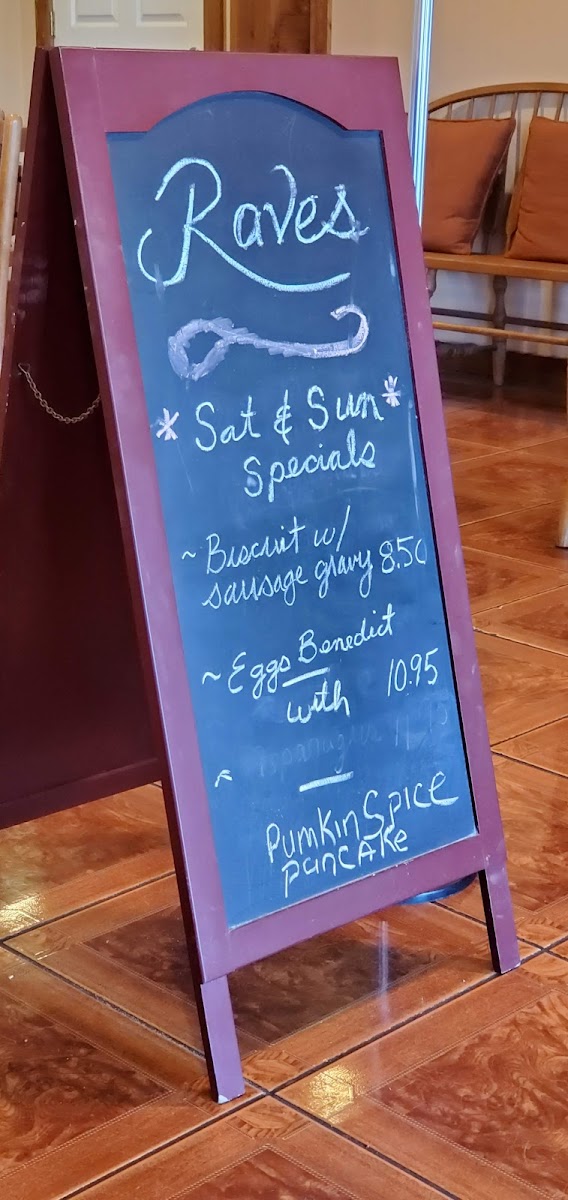 Raves
* Sat & Sun *
Specials
~ Biscuit w/
sausage gravy 8.50
~ Eggs Benedict
with 10.95
~
Pumkin Spice
pancake